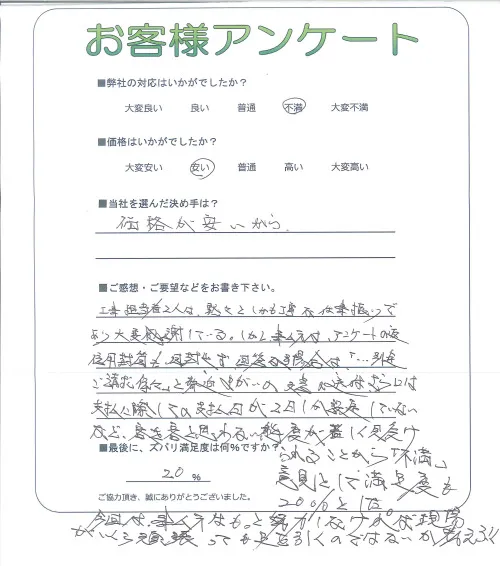 お客様アンケート
■弊社の対応はいかがでしたか？
大変良い 良い 普通 不満 大変不満
■価格はいかがでしたか？
大変安い 安い 普通 高い 大変高い
■当社を選んだ決め手は？
価格が安いから.
■ご感想・ご要望などをお書き下さい。
工事担当者2人は、黙々としかも丁寧な仕事振りで
あり大変感謝している。しかし事ム方は、アンケートの返
信用封筒も同封せず、
ご請求
支払に際しての支払日が2日しか
など、客を客と思わない態度が著しく見受け
■最後に、ズバリ満足度は何%ですか？
られることから「不満」
20 %
意見として満足度も
20%とした。
ご協力頂き、誠にありがとうございました。
今回は、事ム方はもっと努力しなければ現場
がいくら頑張っても足を引くのではないか